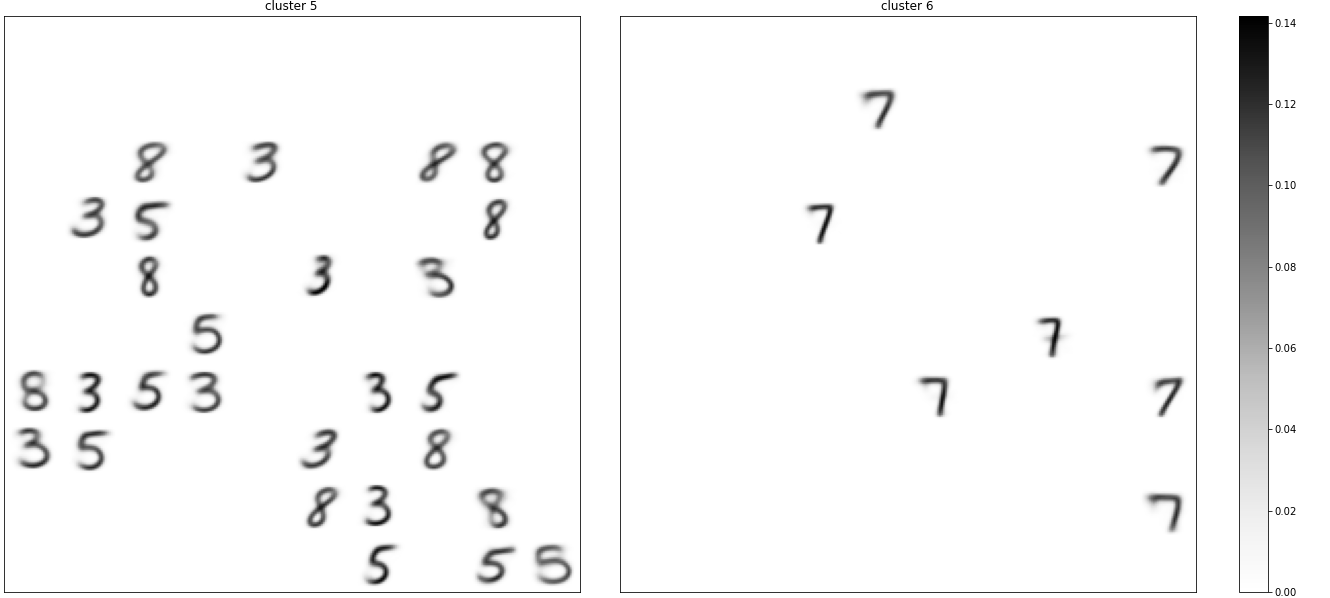 cluster 5
8 3 8 8
3 5 8
8 3 3
5
8 3 5 3 3 5
3 5 3 8
8 3 8
5 5 5
cluster 6
7
7
7
7
7 7
7
0.14
0.12
0.10
0.08
0.06
0.04
0.02
0.00